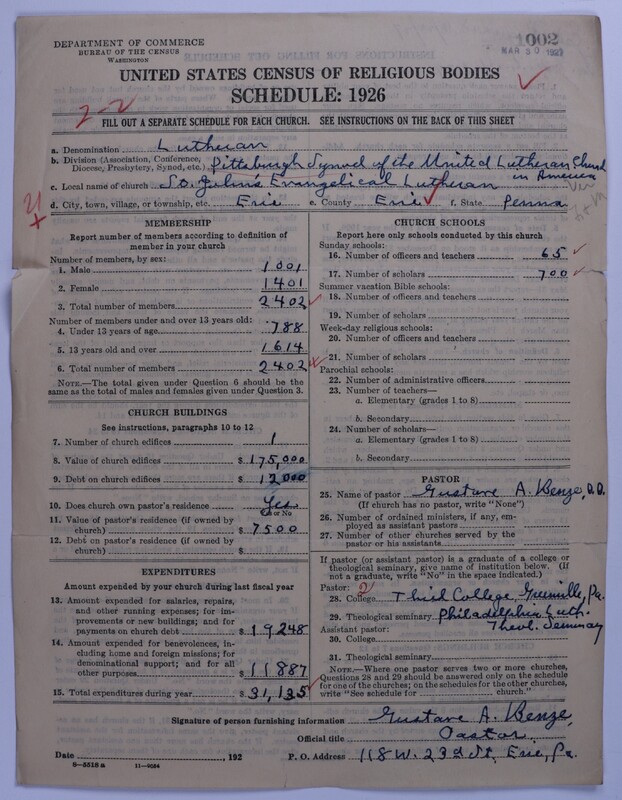 DEPARTMENT OF COMMERCE
BUREAU OF THE CENSUS
WASHINGTON
1002
MAR 30 1927
UNITED STATES CENSUS OF RELIGIOUS BODIES
SCHEDULE: 1926
2-2
FILL OUT A SEPARATE SCHEDULE FOR EACH CHURCH. SEE INSTRUCTIONS ON THE BACK OF THIS SHEET
a. Denomination Lutheran
b. Division (Association, Conference, Diocese, Presbytery, Synod, etc.) Pittsburgh Synod of the United Lutheran Church in America
c. Local name of church St. John's Evangelical Lutheran
d. City, town, village, or township, etc. Erie e. County Erie f. State Penna
MEMBERSHIP
Report number of members according to definition of
member in your church
Number of members, by sex:
1. Male 1001
2. Female 1401
3. Total number of members 2402
Number of members under and over 13 years old:
4. Under 13 years of age 788
5. 13 years old and over 1614
6. Total number of members 2402
NOTE.—The total given under Question 6 should be
same as the total of males and females given under Question 3.
CHURCH BUILDINGS
See instructions, paragraphs 10 to 12
7. Number of church edifices 1
8. Value of church edifices $ 175,000
9. Debt on church edifices $ 12,000
10. Does church own pastor's residence Yes
Yes or No
11. Value of pastor's residence (if owned by
church) $ 7500
12. Debt on pastor's residence (if owned by
church) $
EXPENDITURES
Amount expended by your church during last fiscal year
13. Amount expended for salaries, repairs,
and other running expenses; for im-
provements or new buildings; and for
payments on church debt $ 19248
14. Amount expended for benevolences, in-
cluding home and foreign missions; for
denominational support; and for all
other purposes $ 11887
15. Total expenditures during year $ 31,135
CHURCH SCHOOLS
Report here only schools conducted by this church
Sunday schools:
16. Number of officers and teachers 65
17. Number of scholars 700
Summer vacation Bible schools:
18. Number of officers and teachers
19. Number of scholars
Week-day religious schools:
20. Number of officers and teachers
21. Number of scholars
Parochial schools:
22. Number of administrative officers
23. Number of teachers—
a. Elementary (grades 1 to 8)
b. Secondary
24. Number of scholars—
a. Elementary (grades 1 to 8)
b. Secondary
PASTOR
25. Name of pastor Gustave A. Benze, D.D.
(If church has no pastor, write "None")
26. Number of ordained ministers, if any, em-
ployed as assistant pastors
27. Number of other churches served by the
pastor or his assistants
If pastor (or assistant pastor) is a graduate of a college or
theological seminary, give name of institution below. (If
not a graduate, write "No" in the space indicated.)
Pastor: 2
28. College Thiel College, Greenville, Pa.
29. Theological seminary Philadelphia Luth. Theol. Seminary
Assistant pastor:
30. College
31. Theological seminary
NOTE.—Where one pastor serves two or more churches,
Questions 28 and 29 should be answered only on the schedule
for one of the churches; on the schedules for the other churches,
write "See schedule for church."
Signature of person furnishing information Gustave A. Benze,
Official title Pastor
Date , 192 P. O. Address 118 W. 23d St, Erie, Pa.
8-5518 a 11-9034